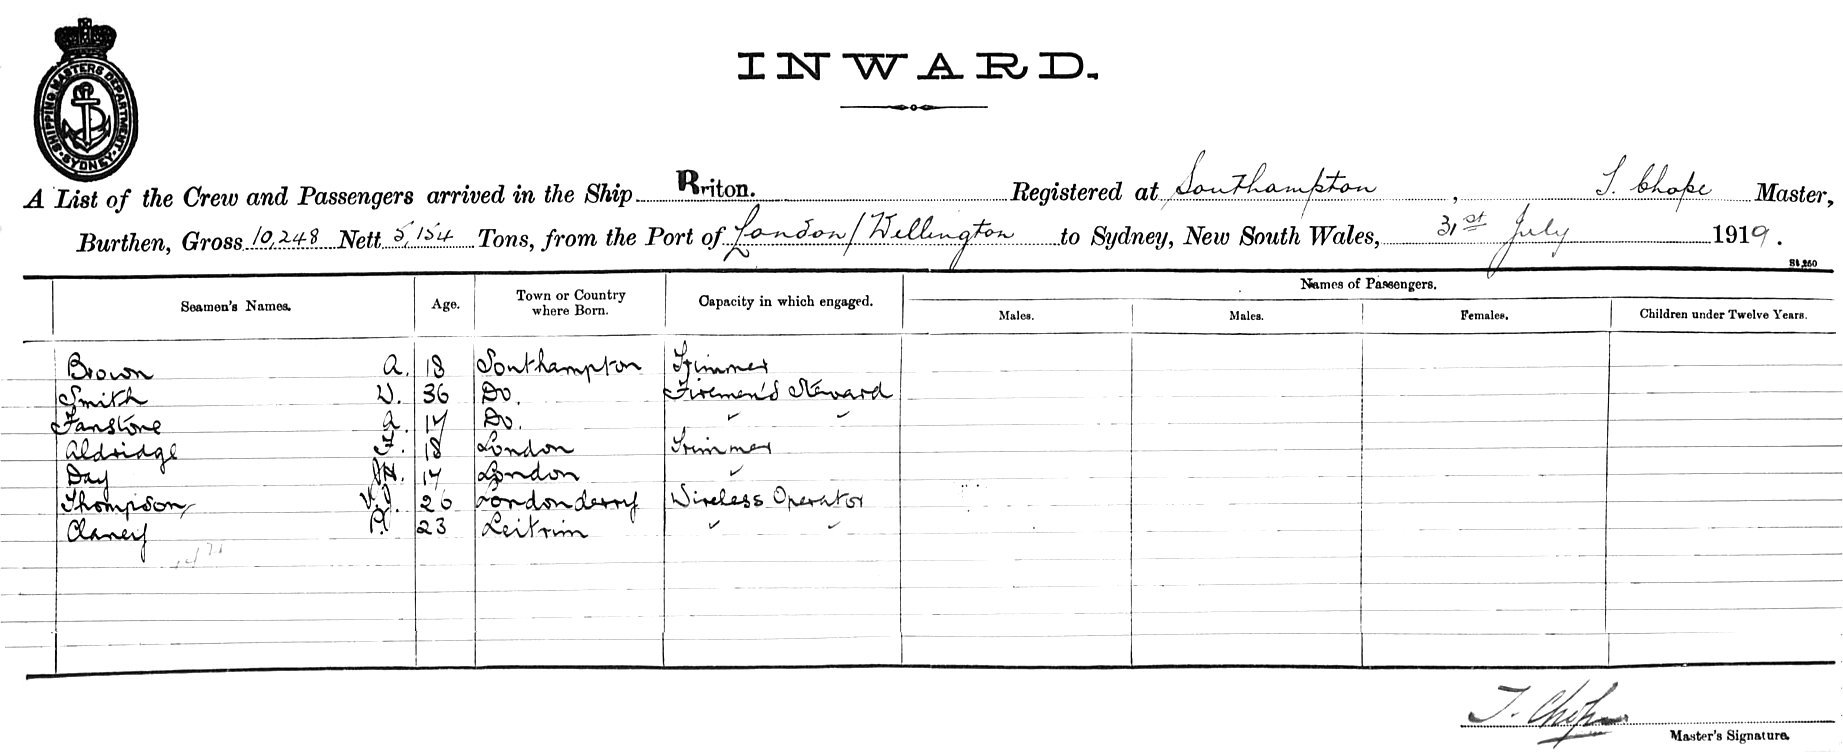 SHIPPING MASTERS DEPARTMENT
SYDNEY
INWARD.
A List of the Crew and Passengers arrived in the Ship Rriton. Registered at Southampton, T. Chope Master,
Burthen, Gross 10,248 Nett 5,154 Tons, from the Port of London/Wellington to Sydney, New South Wales, 31st July 1919.
St,250
Seamen's Names. Age. Town or Country where Born. Capacity in which engaged. Names of Passengers.
Males. Males. Females. Children under Twelve Years.
Brown A. 18 Southampton Trimmer
Smith W. 36 Do. Firemen's Steward
Fanstone A. 17 Do. " "
Aldridge F. 18 London Trimmer
Day 17 London "
Thompson 26 Londonderry Wireless Operator
Clancy P. 23 Leitrim " "
T. Chope
Master's Signature.